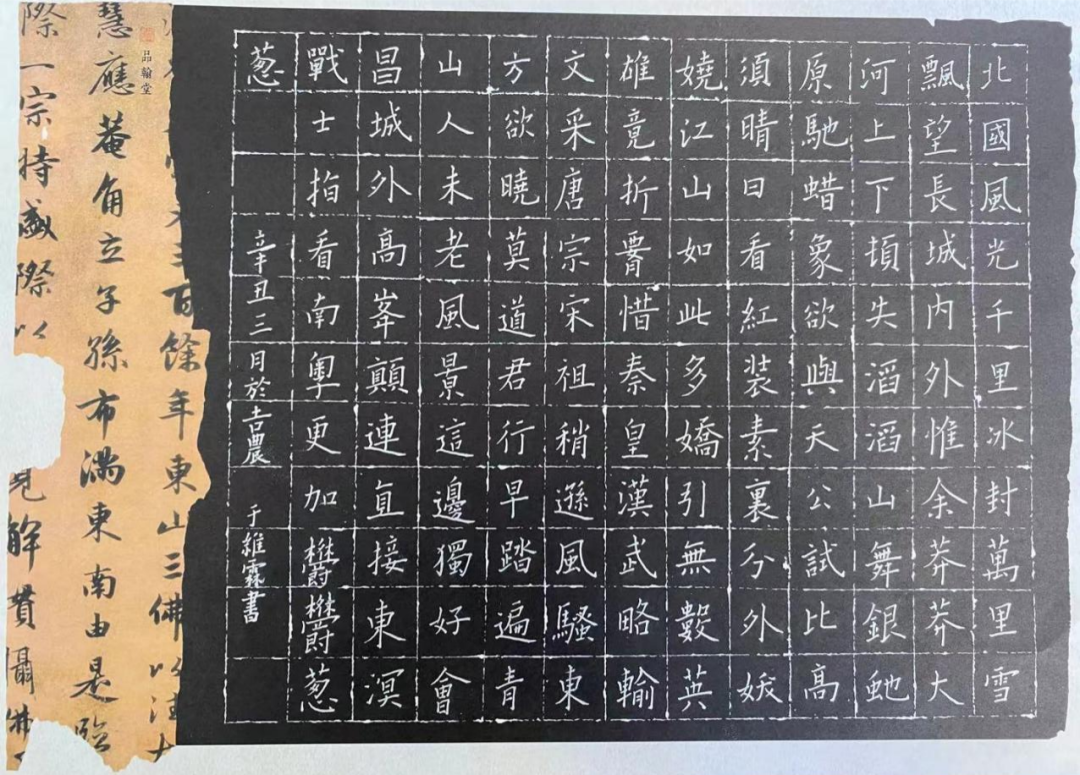 北國風光千里冰封萬里雪
飄望長城內外惟余莽莽大
河上下頓失滔滔山舞銀虵
原馳蜡象欲與天公試比高
須晴日看紅裝素裹分外妖
嬈江山如此多嬌引無數英
雄竟折腰惜秦皇漢武略輸
文采唐宗宋祖稍遜風騷東
方欲曉莫道君行早踏遍青
山人未老風景這邊獨好會
昌城外高峯顛連直接東溟
戰士指看南粵更加鬱鬱葱
葱
辛丑三月於吉農
于維霖書
品翰堂
三百餘年東山三佛以法
慧應菴角立子孫布滿東南由是臨
際一宗特盛際以
見解